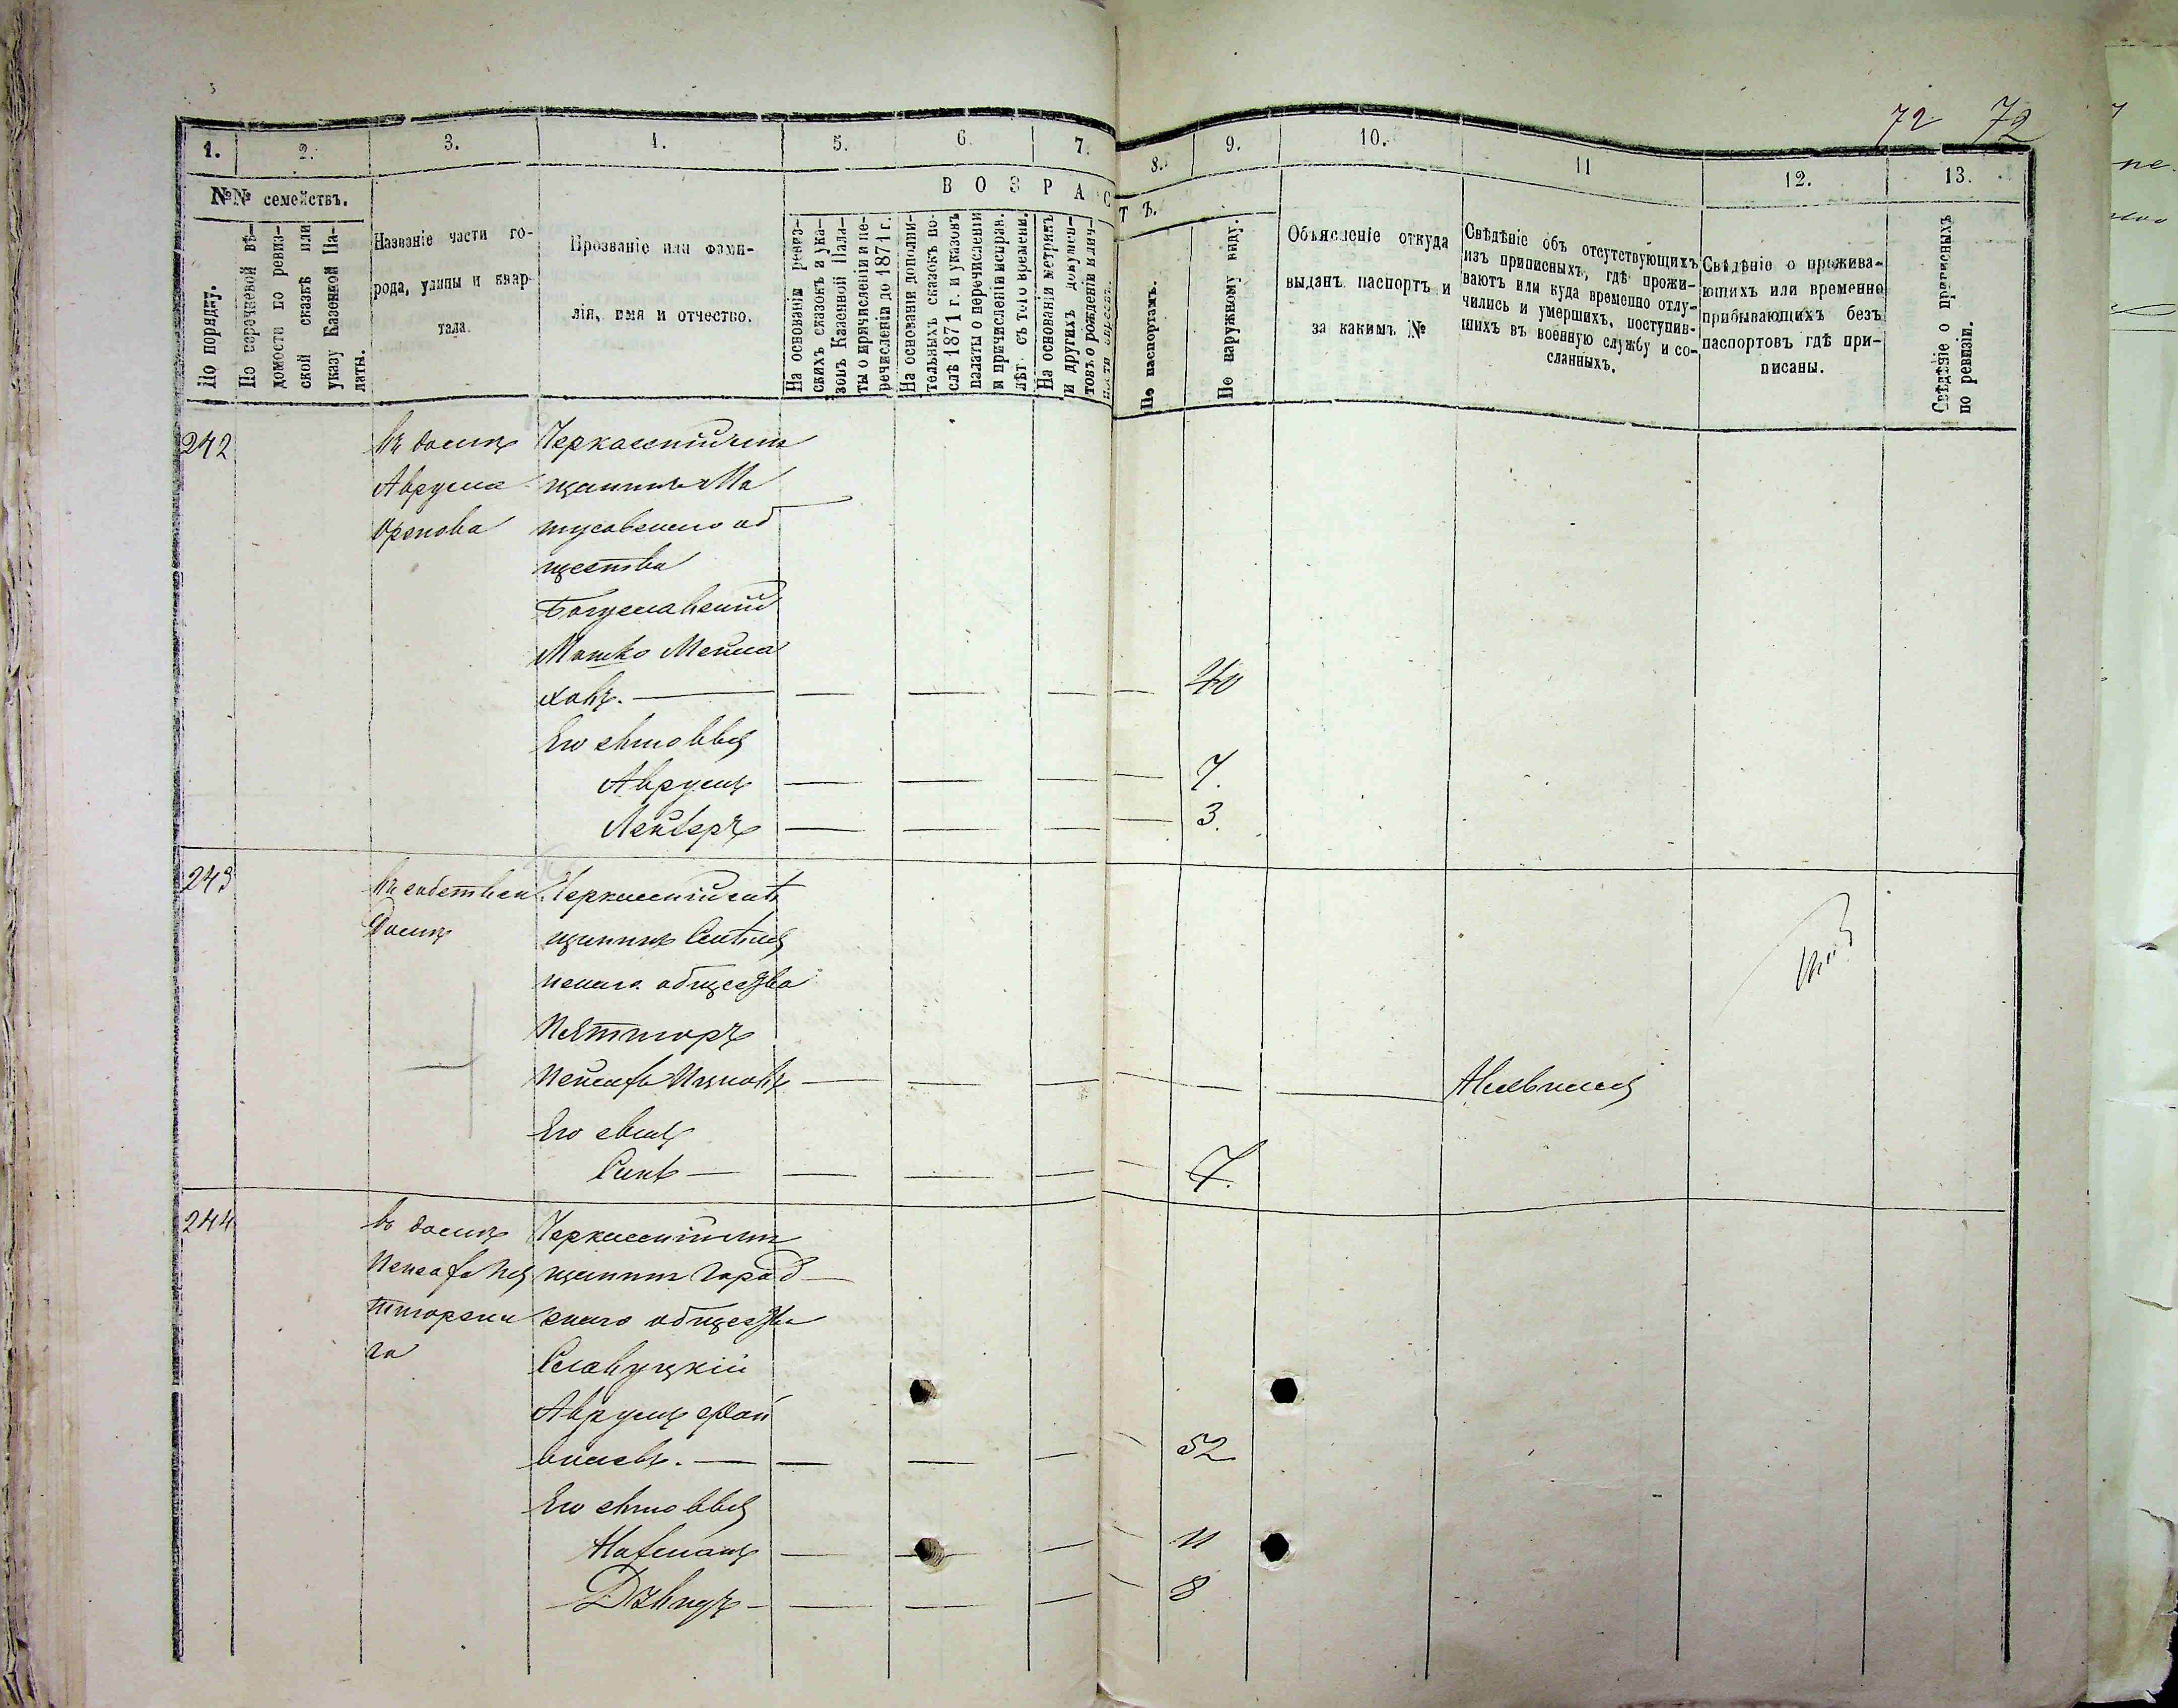 72 72
1. 2. 3. 4. 5. 6. 7. 8. 9. 10. 11 12. 13.
№№ семействъ.
В О З Р А С Т Ъ.
По порядку.
По перечневой вѣ-
домости по ревиз-
ской сказкѣ или
указу Казенной Па-
латы.
Названіе части го-
рода, улицы и квар-
тала.
Прозваніе или фами-
лія, имя и отчество.
На основаніи ревиз-
скихъ сказокъ и ука-
зовъ Казенной Пала-
ты о причисленіи и пе-
речисленіи до 1871 г.
На основаніи дополни-
тельныхъ сказокъ по-
слѣ 1871 г. и указовъ
палаты о перечисленіи
и причисленіи исправ.
лѣт съ того времени.
На основаніи метрикъ
и другихъ докумен-
товъ о рожденіи и лич-
По паспортамъ.
По наружному виду.
Объясненіе откуда
выданъ паспортъ и
за какимъ №
Свѣдѣніе объ отсутствующихъ
изъ приписныхъ, гдѣ прожи-
ваютъ или куда временно отлу-
чились и умершихъ, поступив-
шихъ въ военную службу и со-
сланныхъ.
Свѣдѣніе о прожива-
ющихъ или временно
прибывающихъ безъ
паспортовъ гдѣ при-
писаны.
Свѣдѣніе о приписныхъ
по ревизіи.
242
въ домѣ
Аврума
Черкасскій мѣ
щанинъ Ма
тусовскаго об
щества
Богуславскій
Мошко Мейла
ховъ. 40
Его сыновья
Аврумъ 7.
Лейберъ 3.
243
въ собствен.
домѣ
Черкасскій мѣ
щанинъ Смѣля
нскаго общества
Пятигоръ
Пейсахъ Ицковъ
Его сынъ
7.
244
въ домѣ
Пейсаха Пя
тигорска
го
Черкасскій мѣ
щанинъ Город
скаго общества
Славуцкій
Аврумъ Фай
вишевъ. 52
Его сыновья
Нахманъ 11
Давидъ 8